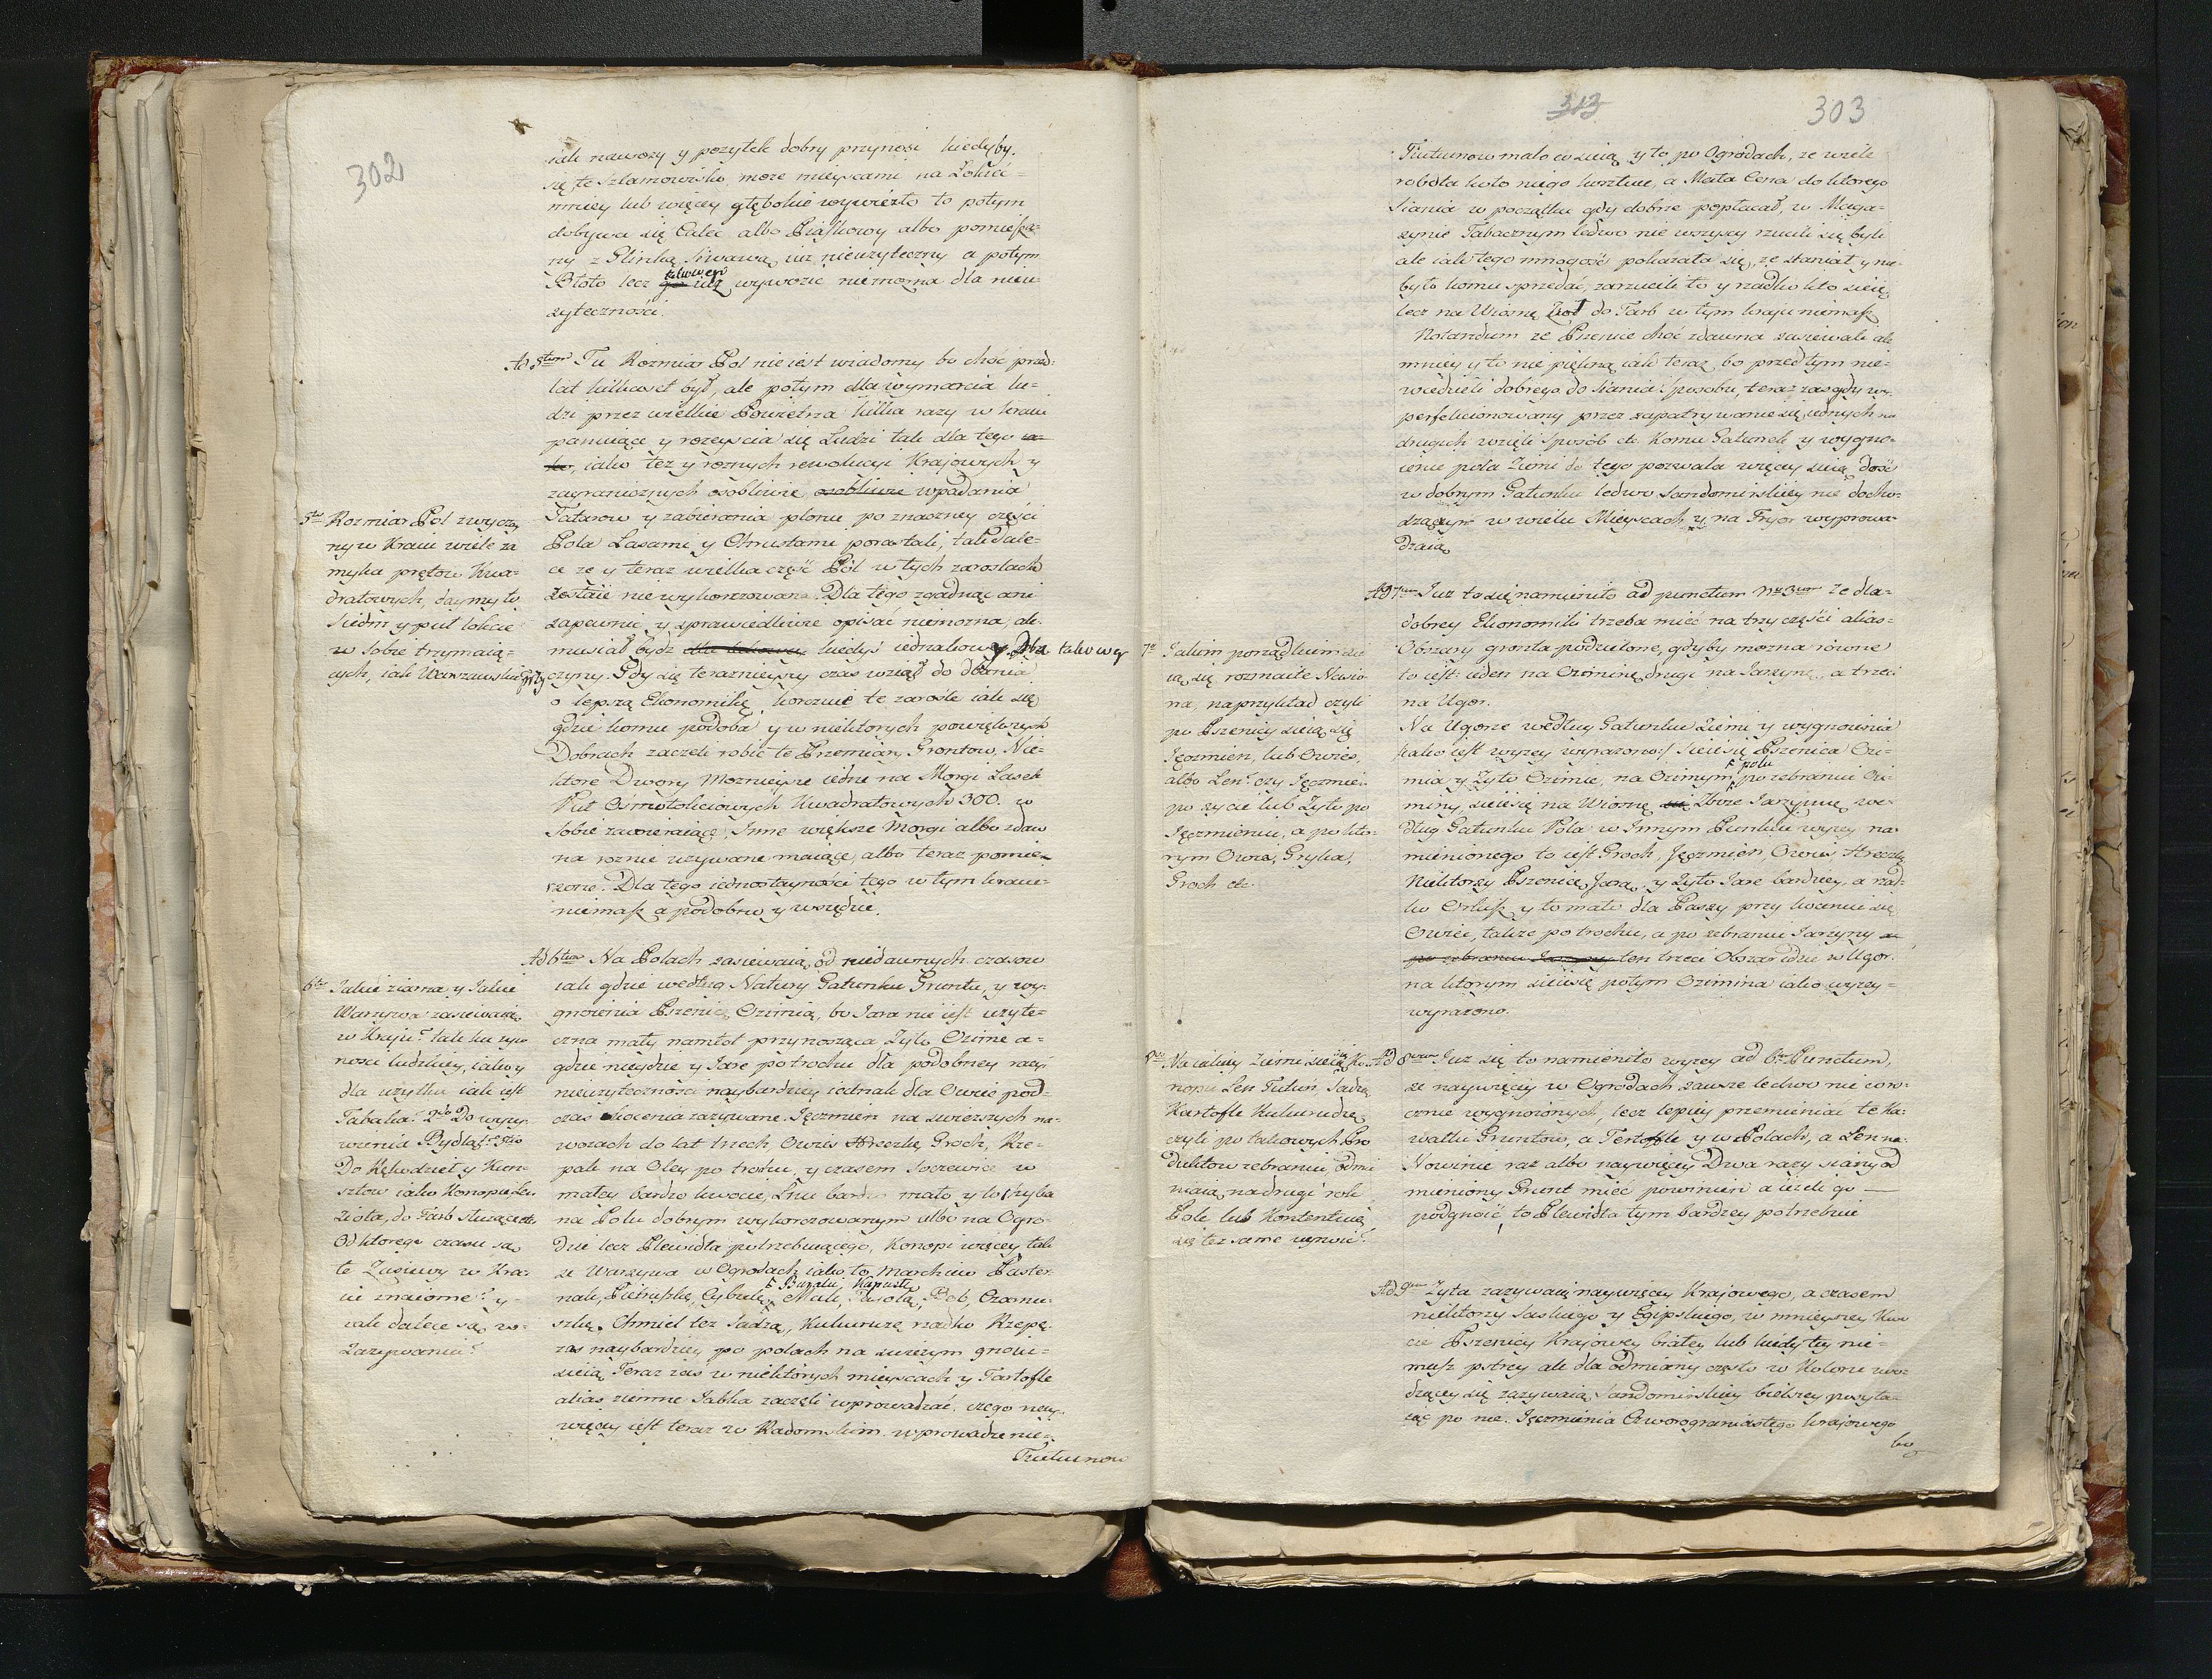 302
iak nawozy y pozytek dobry przynosi kiedyby
się te Szlamowisko moze mieyscami na Łokieć
mniey lub więcey głęboko wywiezło to potym
dobywa się Calec albo Piaskowy albo pomiesza-
ny z Glinką Siwawą iuz nieuzyteczny a potym
Błoto lecz takowego wywozic niemozna dla nieu-
zyteczności.
Ad 5tum Tu Rozmiar Pol nie iest wiadomy bo choć przed
lat kilkaset był, ale potym dla wymarcia lu-
dzi przez wielkie Powietrza kilka razy w kraiu
panuiące y rozeyscia się Ludzi tak dla tego
iako tez y roznych rewolucyi Krajowych y
zagranicznych osobliwie osobliwie wpadania
Tatarow y zabierania plonu po znaczney części
Pola Lasami y Chrustami porastali, tak dale-
ce ze y teraz wielka część Pól w tych zaroslach
zostaie niewykorzowana. Dla tego zgadnąc ani
zapewnie y sprawiedliwie opisać niemozna, ale
musiał bydź kiedyś iednakowy. Dla takowey
przyczyny. Gdy się terazniejszy czas wziął do dbania
o lepszą Ekonomikę, korzuie te zarosle iak się
gdzie komu podoba y w niektorych powiększych
Dobrach zaczeli robić te Przemiary Grontow. Nie-
ktore Dwory Moznieysze iedne na Morgi Lasek
Puł Osmołokciowych Kwadratowych 300. w
sobie zawieraiące, Inne większe Morgi albo zdaw
na roznie uzywane maiące, albo teraz pomie-
rzone. Dla tego iednostayności tego w tym kraiu
niemasz a podobno y wszędzie.
5te Rozmiar Pol zwyczay
ny w Kraiu wiele za
myka prętow Kwa-
dratowych, daymy to
Siedm y puł łokcia
w sobie trzymaią-
cych, iak Warszawski
Ad 6tum Na Polach zasiewaią od niedawnych czasow
iak gdzie według Natury Gatunku Gruntu, y wy-
gnoienia Pszenicę Ozimią, bo Jara nie iest uzyte-
czna mały namłot przynosząca Zyto Ozime a-
gdzie nieydzie y Jare po trochu dla podobney racy
nieuzyteczności naybardziey iednak dla Owiec pod-
czas kocenia zazywane. Jęczmień na swiezszych na-
wozach do lat trzech, Owies Hreczkę Groch, Rze-
pak na Oley po trochu, y czasem Soczewice w
małey bardzo kwocie, Lnu bardzo mało y to chyba
na Polu dobrym wykorzowanym albo na Ogro-
dzie lecz Plewidła potrzebuiącego, Konopi więcey tak
ze Warzywa w Ogrodach iako to Marchiew Paster-
nak, Pietruszkę, Cybulę, Buraki, Kapustę, Mak, Fasolą, Bob, Czarnu-
szkę. Chmiel tez Sadzą, Kukuruzę rzadko Rzepę
zas naybardziey po polach na swiezym gnoiu-
sieią Teraz zas w niektórych mieyscach y Tartofle
alias ziemne Jabka zaczęli wprowadzać, czego nay-
więcey iest teraz w Radomskim wprowadzenie.
Tiutiunow
6te Jakie ziarna y Jakie
Warzywa zasiewaią
w Kraju? tak ku zyw
nosci ludzkiey, iako y
dla uzytku iak iest
Tabaka? 2do Do wyzy-
wienia Bydląt? 3tio
Do Rękodzieł y Kun-
sztow iako Konopie Len
Zioła, do Farb służące etc
Od ktorego czasu są
te Zasiewy w Kra-
iu znaiome? y-
iak dalece są w-
Zazywaniu?
313
303
Tiutiunow mało co sieią y to po Ogrodach, ze wiele
robota koło niego kosztuie, a Mała Cena do ktorego
siania w początku gdy dobrze popłacał, w Maga-
zynie Tabacznym ledwo nie wszyscy rzucili się byli
ale iak tego mnogość pokazała się, ze staniał y nie
było komu sprzedać, zarzucili to y rzadko kto sieię
lecz na Wiosnę Zioł do Farb w tym kraju niemasz
Notandum ze Pszenice choć zdawna zasiewali ale
mniey y to nie piękną iak teraz, bo przed tym nie-
wiedzieli dobrego do siania Sposobu, teraz zas gdy wy-
perfekcionowany przez zapatrywanie się iednych na
drugich wzięli Sposób etc. Komu Gatunek y wygno-
ienie pola Ziemi do tego pozwala więcey sieią dość
w dobrym Gatunku ledwo Sandomirskiey nie docho-
dzącym w wielu Mieyscach y na Fryor wyprowa-
dzaią
Ad 7um Juz to się namieniło ad punctum Nro 3um ze dla-
dobrey Ekonomiki trzeba mieć na trzy części alias-
Obszary gronta podzielone, gdyby mozna równe
to iest: ieden na Oziminę drugi na Jarzynę, a trzeci
na Ugor.
Na Ugorze według Gatunku Ziemi y wygnoienia
/:iako iest wyzey wyrazono:/ Sieie się Pszenica Ozi-
mia y Zyto Ozimie, na Ozimym polu po zebraniu Ozi-
miny, sieie się na Wiosnę Zboze Jarzynne we-
dług Gatunku Pola w Innym Punkcie wyzey na
mienionego to iest Groch, Jęczmień, Owies, Hreczkę
Niektorzy Pszenicę Jarą, y Zyto Jare bardziey, a rzad-
ko Orkisz y to mało dla Paszy przy koceniu się
Owiec, takze po trochu, a po zebraniu Jarzyny
po zebraniu Jarzyny ten trzeci Obszar idzie w Ugor.
na ktorym sieie się potym Ozimina iako wyzey-
wyrazono.
7e Jakim porządkiem sie
ią się rozmaite Nasio-
na, naprzykład czyli
po Pszenicy sieią się
Jęczmień, lub Owies,
albo Len? czy Jęczmień
po zycie lub Zyto po
Jęczmieniu, a po kto-
rym Owies, Gryka,
Groch etc.
Ad 8um Juz się to namieniło wyzey ad 6tum Punctum,
ze naywięcey w Ogrodach zawsze ledwo nie coro-
cznie wygnoionych, lecz lepiey przemieniać te Ka-
wałki Gruntow, a Tertofle y w Polach, a Len na-
Nowinie raz albo naywięcey Dwa razy siany od
mieniony Grunt mieć powinien a iezeli go —
podgnoić, to Plewidła tym bardziey potrzebuie
8e Na iakiey Ziemi sieią Ko-
nopie Len Tutuń, Sadzą
Kartofle Kukurudzę
czyli po takowych Pro
duktow zebraniu odmi
niaią na drugi rok
Pole, lub Kontentuią
się też same uprawić?
Ad 9um Zyta zazywaią naywięcey Krajowego, a czasem
niektorzy Saskiego y Egipskiego, w mnieyszey Kwo
cie Pszenicy Krajowey białey lub kiedy tey nie-
masz pstrey ale dla odmiany często w Kolorze uro-
dzącey się zazywaią Sandomirskiey bielszey posyła-
iąc po nie. Jęczmienia Czworograniastego krajowego
bo